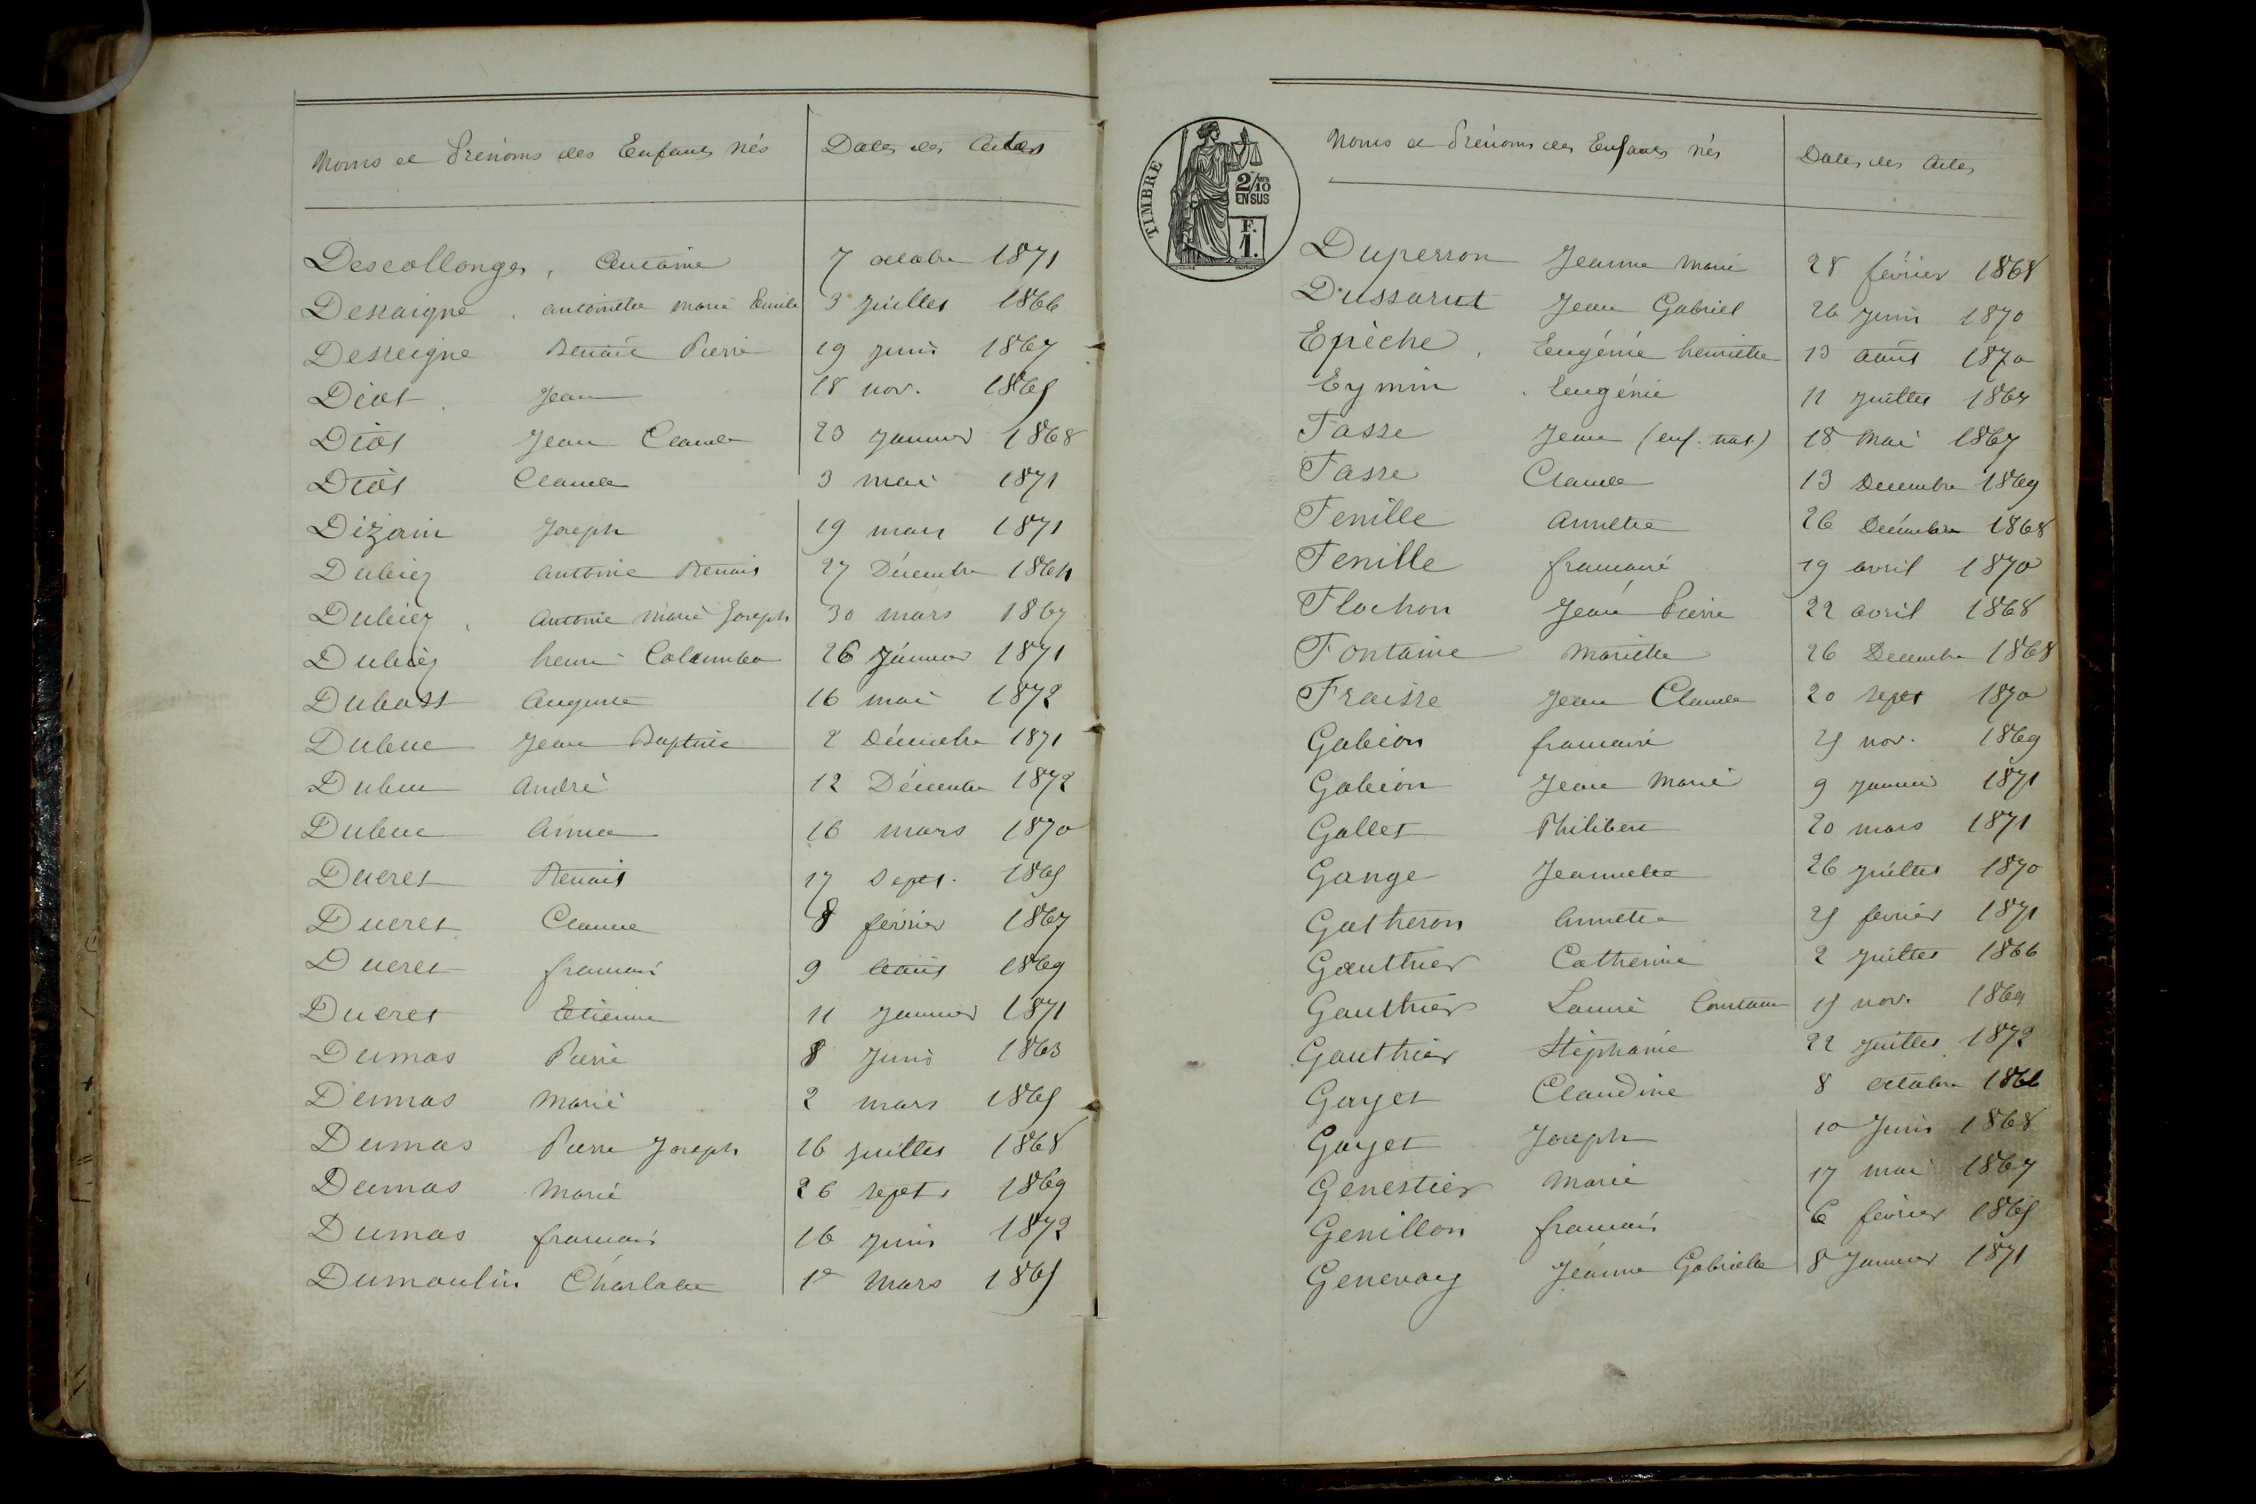 Noms et Prénoms des Enfants nés Dates des Actes
Descollonges, Antoine 7 octobre 1871
Dessaigne, antoinette Marie Emilie 3 juillet 1866
Desseigne Benoit Pierre 19 juin 1867
Diot Jean 18 nov. 1865
Diot Jean Claude 23 janvier 1868
Diot Claude 3 mai 1871
Dizain Joseph 19 mars 1871
Dubiez Antoine Benoit 27 Décembre 1864
Dubiez, Antoine Marie Joseph 30 mars 1867
Dubiez henri Colombe 26 Janvier 1871
Dubost Auguste 16 mai 1872
Dubuc Jean Baptiste 2 Décembre 1871
Dubuc André 12 Décembre 1872
Dubuc Anna 16 mars 1870
Ducret Benoit 17 Sept. 1865
Ducret Claude 8 février 1867
Ducret francois 9 Août 1869
Ducret Etienne 11 Janvier 1871
Dumas Pierre 8 Juin 1863
Dumas Marie 2 mars 1865
Dumas Pierre Joseph 16 juillet 1868
Dumas Marie 26 sept 1869
Dumas francois 16 juin 1872
Dumoulin Charlotte 1er Mars 1865
TIMBRE
2/10
EN SUS
F.
1.
Noms et Prénoms des Enfants nés Dates des Actes
Duperron Jeanne Marie 28 février 1868
Dussarut Jean Gabriel 26 juin 1870
Epèche, Eugénie henriette 13 août 1870
Eymin Eugénie 11 juillet 1867
Fasse Jean (enf. nat.) 18 Mai 1867
Fasse Claude 13 Decembre 1869
Fenille Annette 26 Décembre 1868
Fenille francois 19 avril 1870
Flachon Jean Pierre 22 avril 1868
Fontaine Mariette 26 Decembre 1868
Fraisse Jean Claude 20 sept 1870
Gabion francois 25 nov. 1869
Gabion Jean Marie 9 janvier 1871
Gallet Philibert 20 mars 1871
Gange Jeannette 26 juillet 1870
Gatheron Annette 25 février 1871
Gauthier Catherine 2 juillet 1866
Gauthier Louise Constance 15 nov. 1869
Gauthier Stéphanie 22 juillet 1872
Gayet Claudine 8 octobre 1866
Gayet Joseph 10 Juin 1868
Genestier Marie 17 mai 1867
Genillon francois 6 février 1865
Genevay Jéanne Gabrielle 8 Janvier 1871